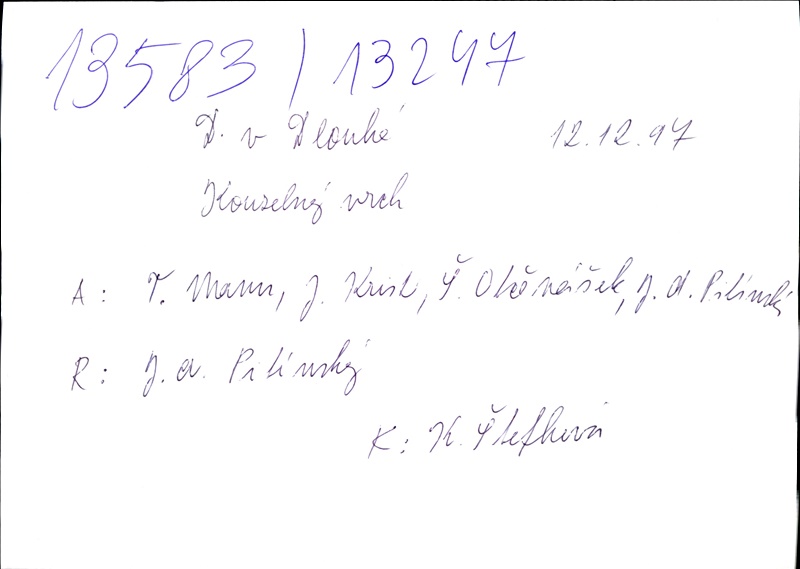 13583 / 13247
D. v Dlouhé 12.12.97
Kouzelný vrch
A: T. Mann, J. Krist, Š. Otčenášek, J. A. Pitínský
R: J. A. Pitínský
K: K. Štefková